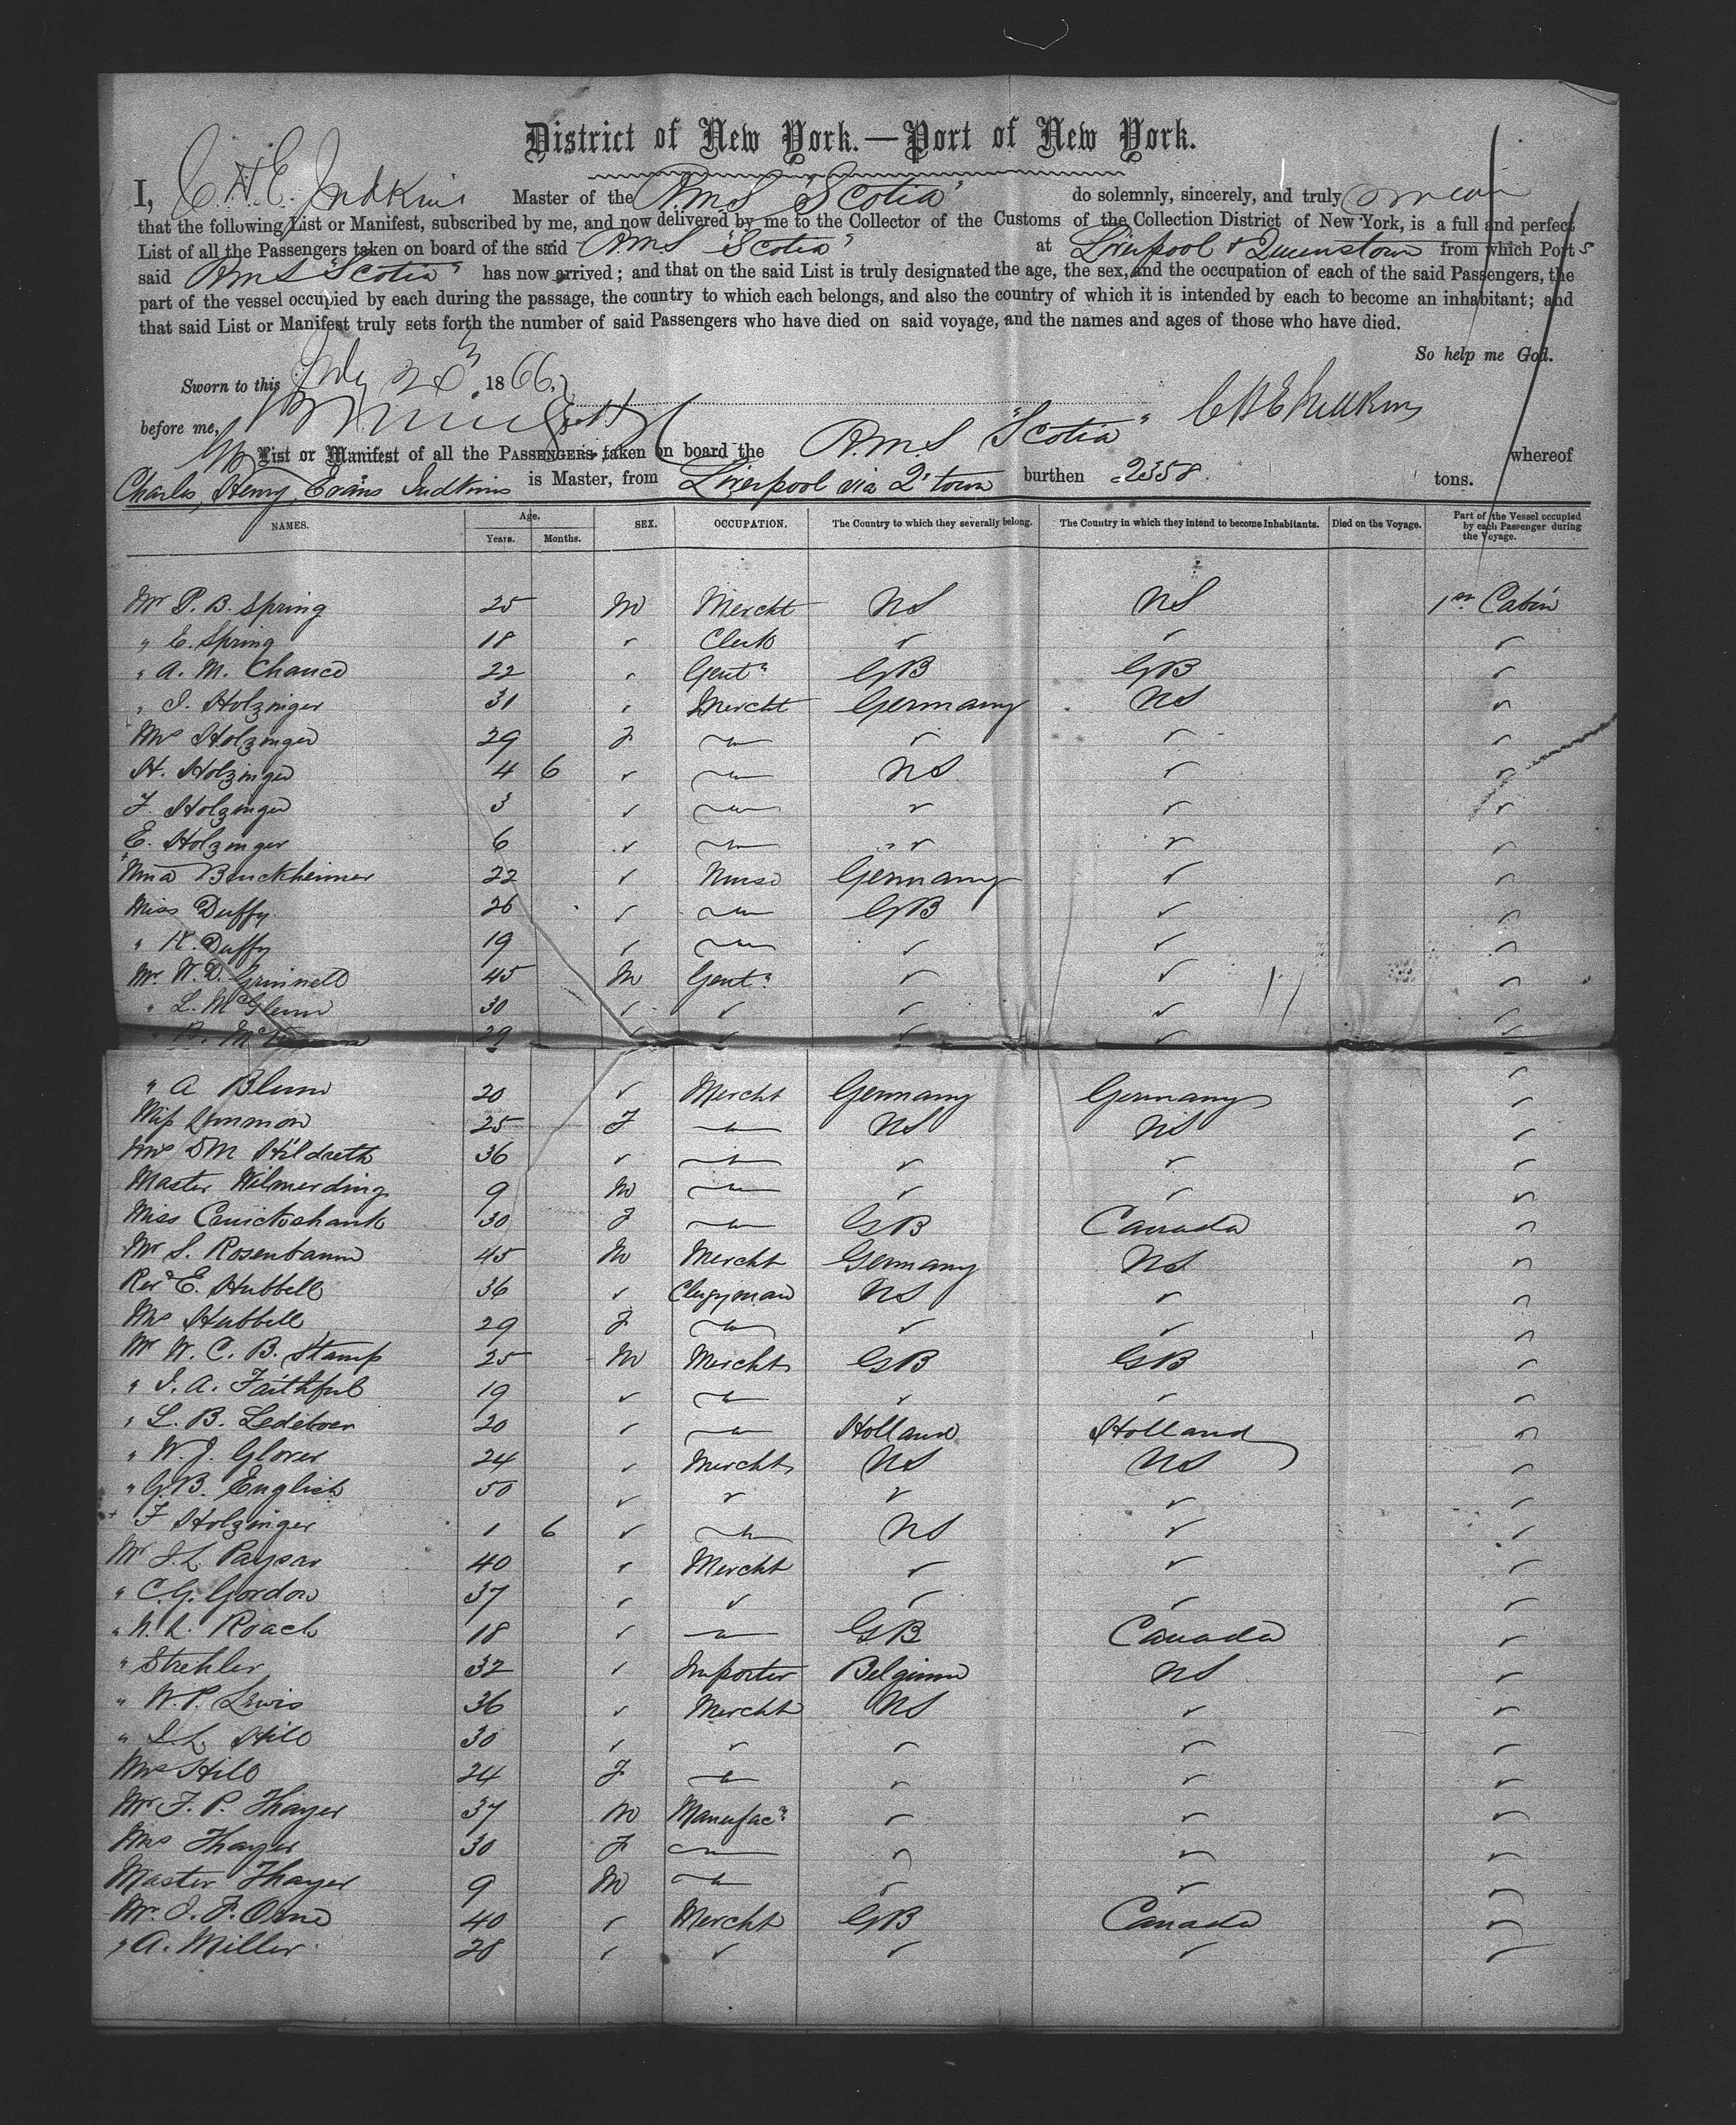 District of New York.—Port of New York.
I, C. H. E. Judkins Master of the R.M.S "Scotia" do solemnly, sincerely, and truly swear
that the following List or Manifest, subscribed by me, and now delivered by me to the Collector of the Customs of the Collection District of New York, is a full and perfect
List of all the Passengers taken on board of the said R.M.S "Scotia" at Liverpool & Queenstown from which Ports
said R.M.S "Scotia" has now arrived; and that on the said List is truly designated the age, the sex, and the occupation of each of the said Passengers, the
part of the vessel occupied by each during the passage, the country to which each belongs, and also the country of which it is intended by each to become an inhabitant; and
that said List or Manifest truly sets forth the number of said Passengers who have died on said voyage, and the names and ages of those who have died.
So help me God.
Sworn to this July 1866,
before me, C H E Judkins
List or Manifest of all the PASSENGERS taken on board the R.M.S "Scotia" whereof
Charles Henry Evans Judkins is Master, from Liverpool via Q'town burthen 2358 tons.
NAMES. Age. SEX. OCCUPATION. The Country to which they severally belong. The Country in which they intend to become Inhabitants. Died on the Voyage. Part of the Vessel occupied by each Passenger during the Voyage.
Years. Months.
Mr P. B. Spring 25 M Mercht US US 1st Cabin
" E. Spring 18 ✓ Clerk ✓ ✓ ✓
" A. M. Chance 22 ✓ Gentn GB GB ✓
" I. Holzinger 31 ✓ Mercht Germany US ✓
Mrs Holzinger 29 F — ✓ ✓ ✓
H. Holzinger 4 6 ✓ — US ✓ ✓
F. Holzinger 3 ✓ — ✓ ✓ ✓
E. Holzinger 6 ✓ — " ✓ ✓ ✓
Nina Bruckheimer 22 ✓ Nurse Germany ✓ ✓
Miss Duffy 26 ✓ — GB ✓ ✓
" K. Duffy 19 ✓ — ✓ ✓ ✓
Mr W. D. Grinnell 45 M Gentn ✓ ✓ ✓
" L. McGlenn 30 ✓ ✓ ✓ ✓ ✓
" B. 29 ✓ ✓ ✓ ✓ ✓
" A Blum 20 ✓ Mercht Germany Germany ✓
Miss Ammon 25 F — US US ✓
Mrs D M Hildreth 36 ✓ — ✓ ✓ ✓
Master Wilmerding 9 M — ✓ ✓ ✓
Miss Cruickshank 30 F — GB Canada ✓
Mr S. Rosenbaum 45 M Mercht Germany US ✓
Revd E. Hubbell 36 ✓ Clergyman US ✓ ✓
Mrs Hubbell 29 F — ✓ ✓ ✓
Mr W. C. B. Stamp 25 M Mercht GB GB ✓
" I. A. Faithful 19 ✓ — ✓ ✓ ✓
" L. B. Ledeboer 20 ✓ — Holland Holland ✓
" W. J. Glover 24 ✓ Mercht US US ✓
" G. B. English 50 ✓ ✓ ✓ ✓ ✓
+ F Holzinger 1 6 ✓ — US ✓ ✓
Mr I. L. Payson 40 ✓ Mercht ✓ ✓ ✓
" C. G. Gordon 37 ✓ ✓ ✓ ✓ ✓
" W. L. Roach 18 ✓ — GB Canada ✓
" Strehler 32 ✓ Importer Belgium US ✓
" W. P. Lewis 36 ✓ Mercht US ✓ ✓
" I. L. Hill 30 ✓ ✓ ✓ ✓ ✓
Mrs Hill 24 F — ✓ ✓ ✓
Mr F. P. Thayer 37 M Manufacr ✓ ✓ ✓
Mrs Thayer 30 F — ✓ ✓ ✓
Master Thayer 9 M — ✓ ✓ ✓
Mr. I. F. Orne 40 ✓ Mercht GB Canada ✓
" A. Miller 28 ✓ ✓ ✓ ✓ ✓